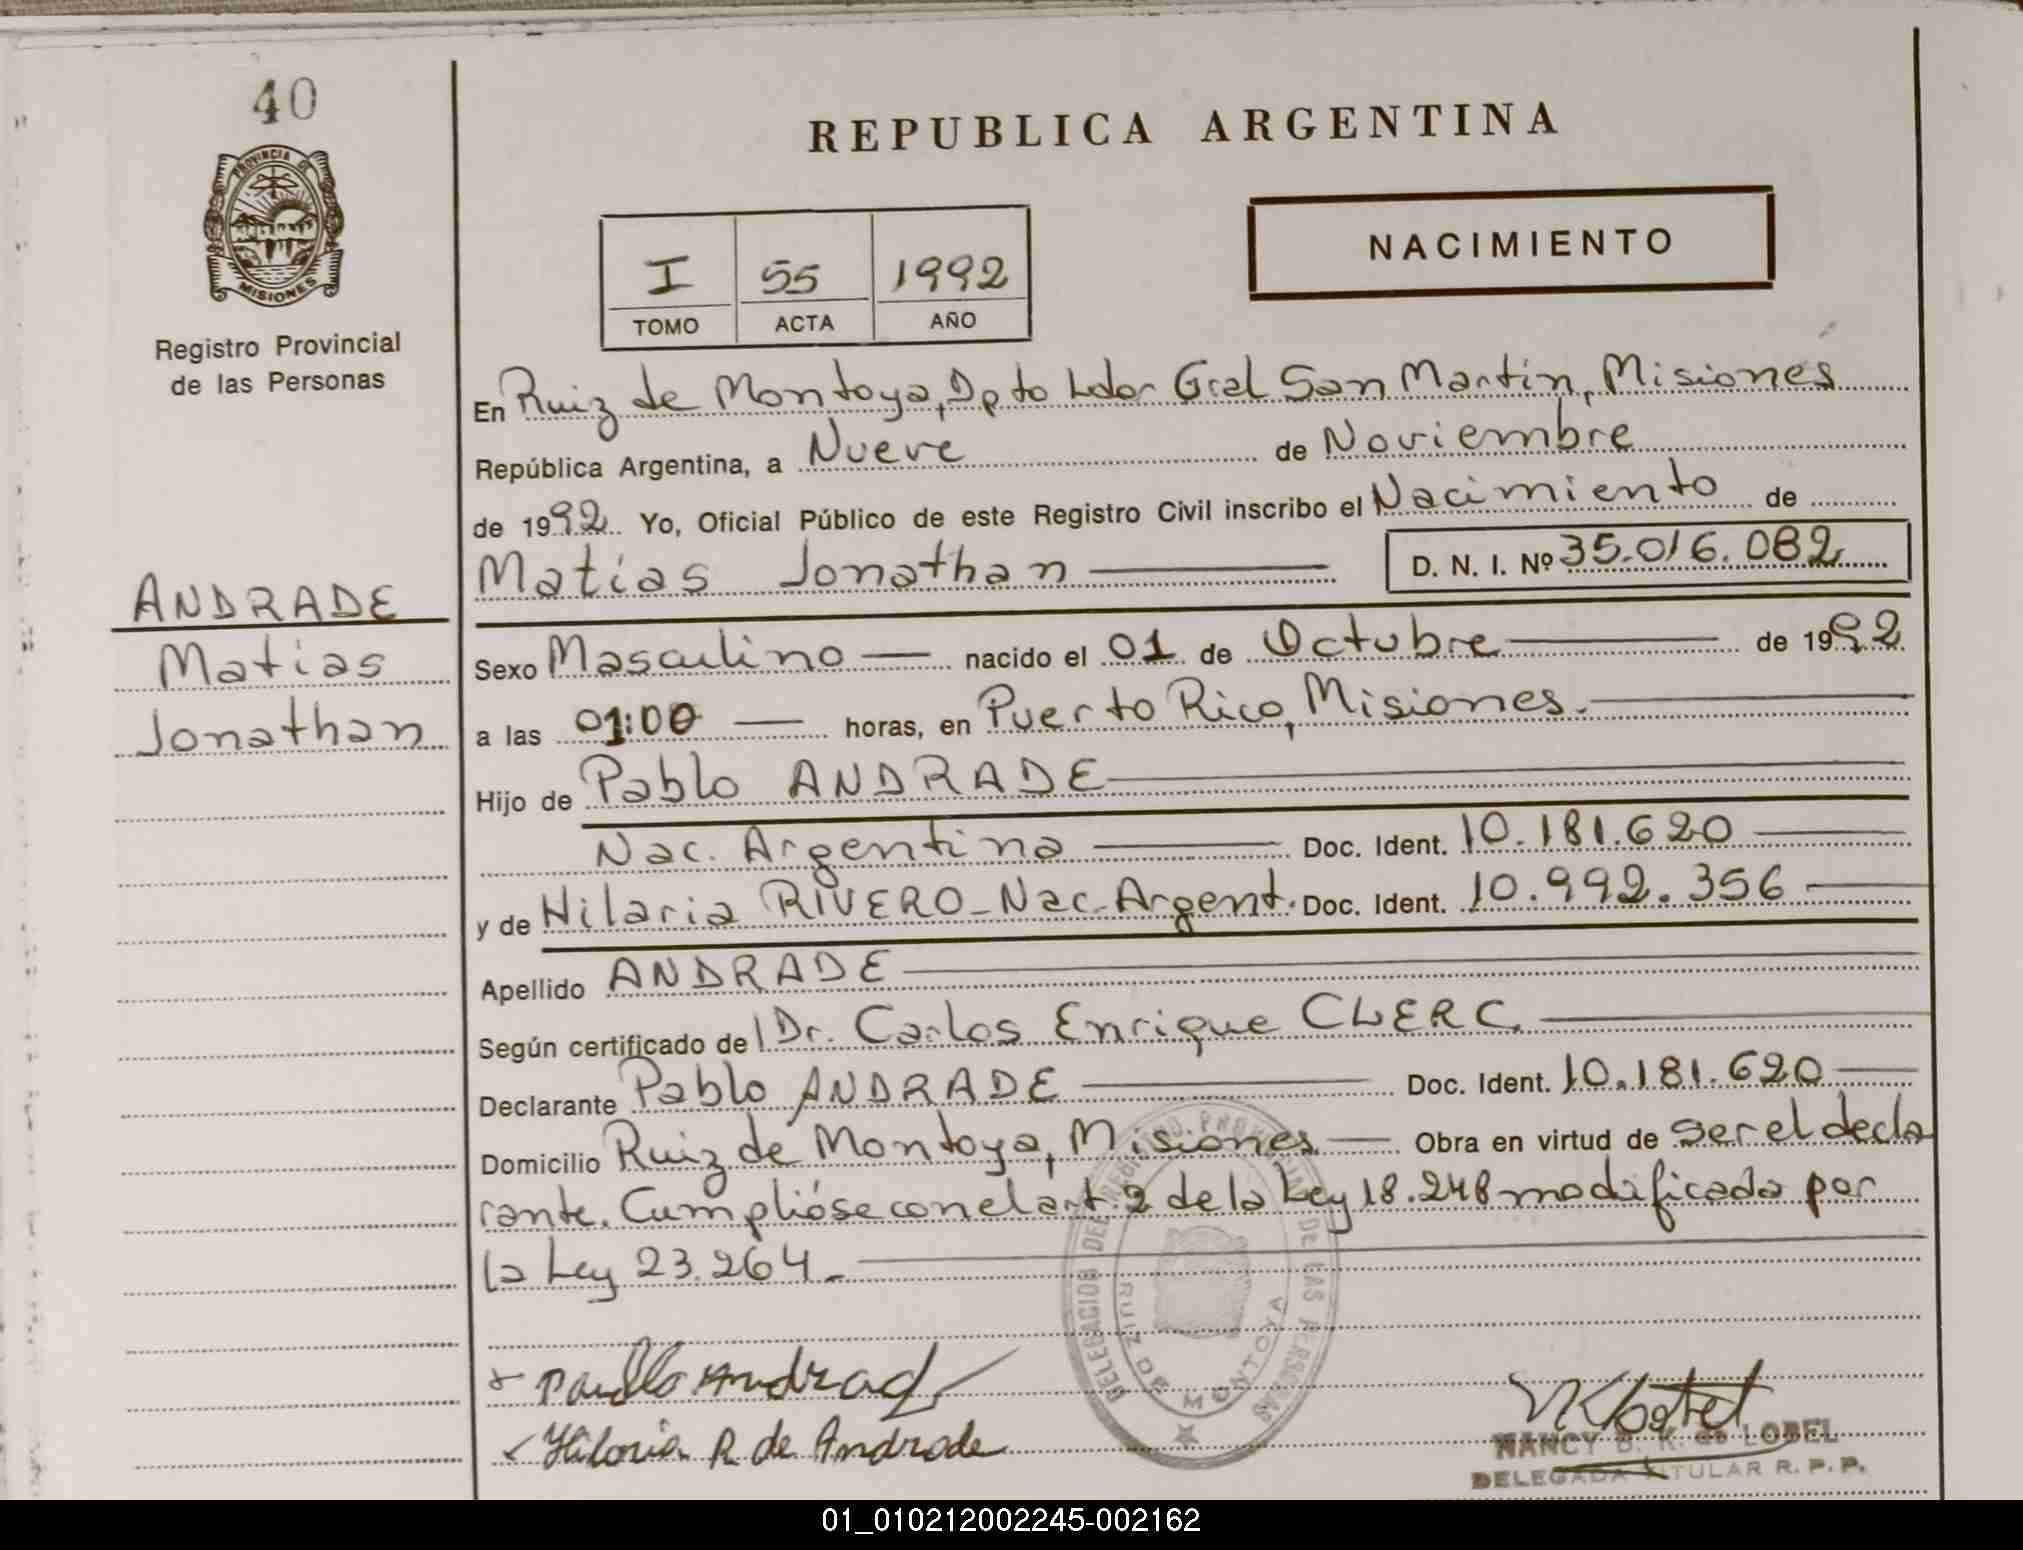 40
PROVINCIA DE
MISIONES
Registro Provincial
de las Personas
ANDRADE
Matías
Jonathan
REPUBLICA ARGENTINA
I 55 1992
TOMO ACTA AÑO
NACIMIENTO
En Ruiz de Montoya, Dpto Ldor Gral San Martín, Misiones
República Argentina, a Nueve de Noviembre
de 1992 Yo, Oficial Público de este Registro Civil inscribo el Nacimiento de
Matías Jonathan D. N. I. Nº 35.016.082
Sexo Masculino nacido el 01 de Octubre de 1992
a las 01:00 horas, en Puerto Rico, Misiones.
Hijo de Pablo ANDRADE
Nac. Argentina Doc. Ident. 10.181.620
y de Hilaria RIVERO - Nac. Argent. Doc. Ident. 10.992.356
Apellido ANDRADE
Según certificado de Dr. Carlos Enrique CLERC.
Declarante Pablo ANDRADE Doc. Ident. 10.181.620
Domicilio Ruiz de Montoya, Misiones Obra en virtud de ser el decla
rante. Cumplióse con el art. 2 de la Ley 18.248 modificada por
la Ley 23.264.-
DELEGACION DEL REGISTRO PROVINCIAL DE LAS PERSONAS
RUIZ DE MONTOYA
Hilaria R de Andrade
NANCY B. K. de LOBEL
DELEGADA TITULAR R. P. P.
01_010212002245-002162